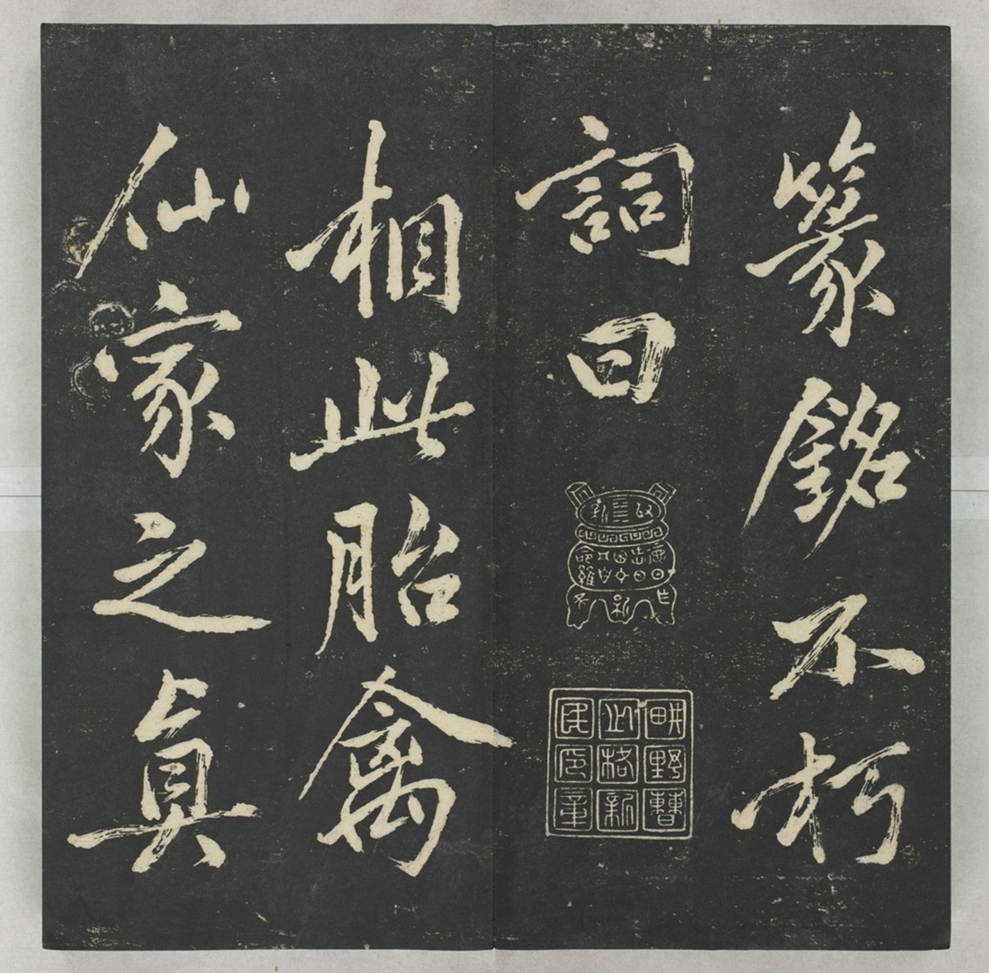 篆銘不朽
詞曰
相此胎禽
仙家之真